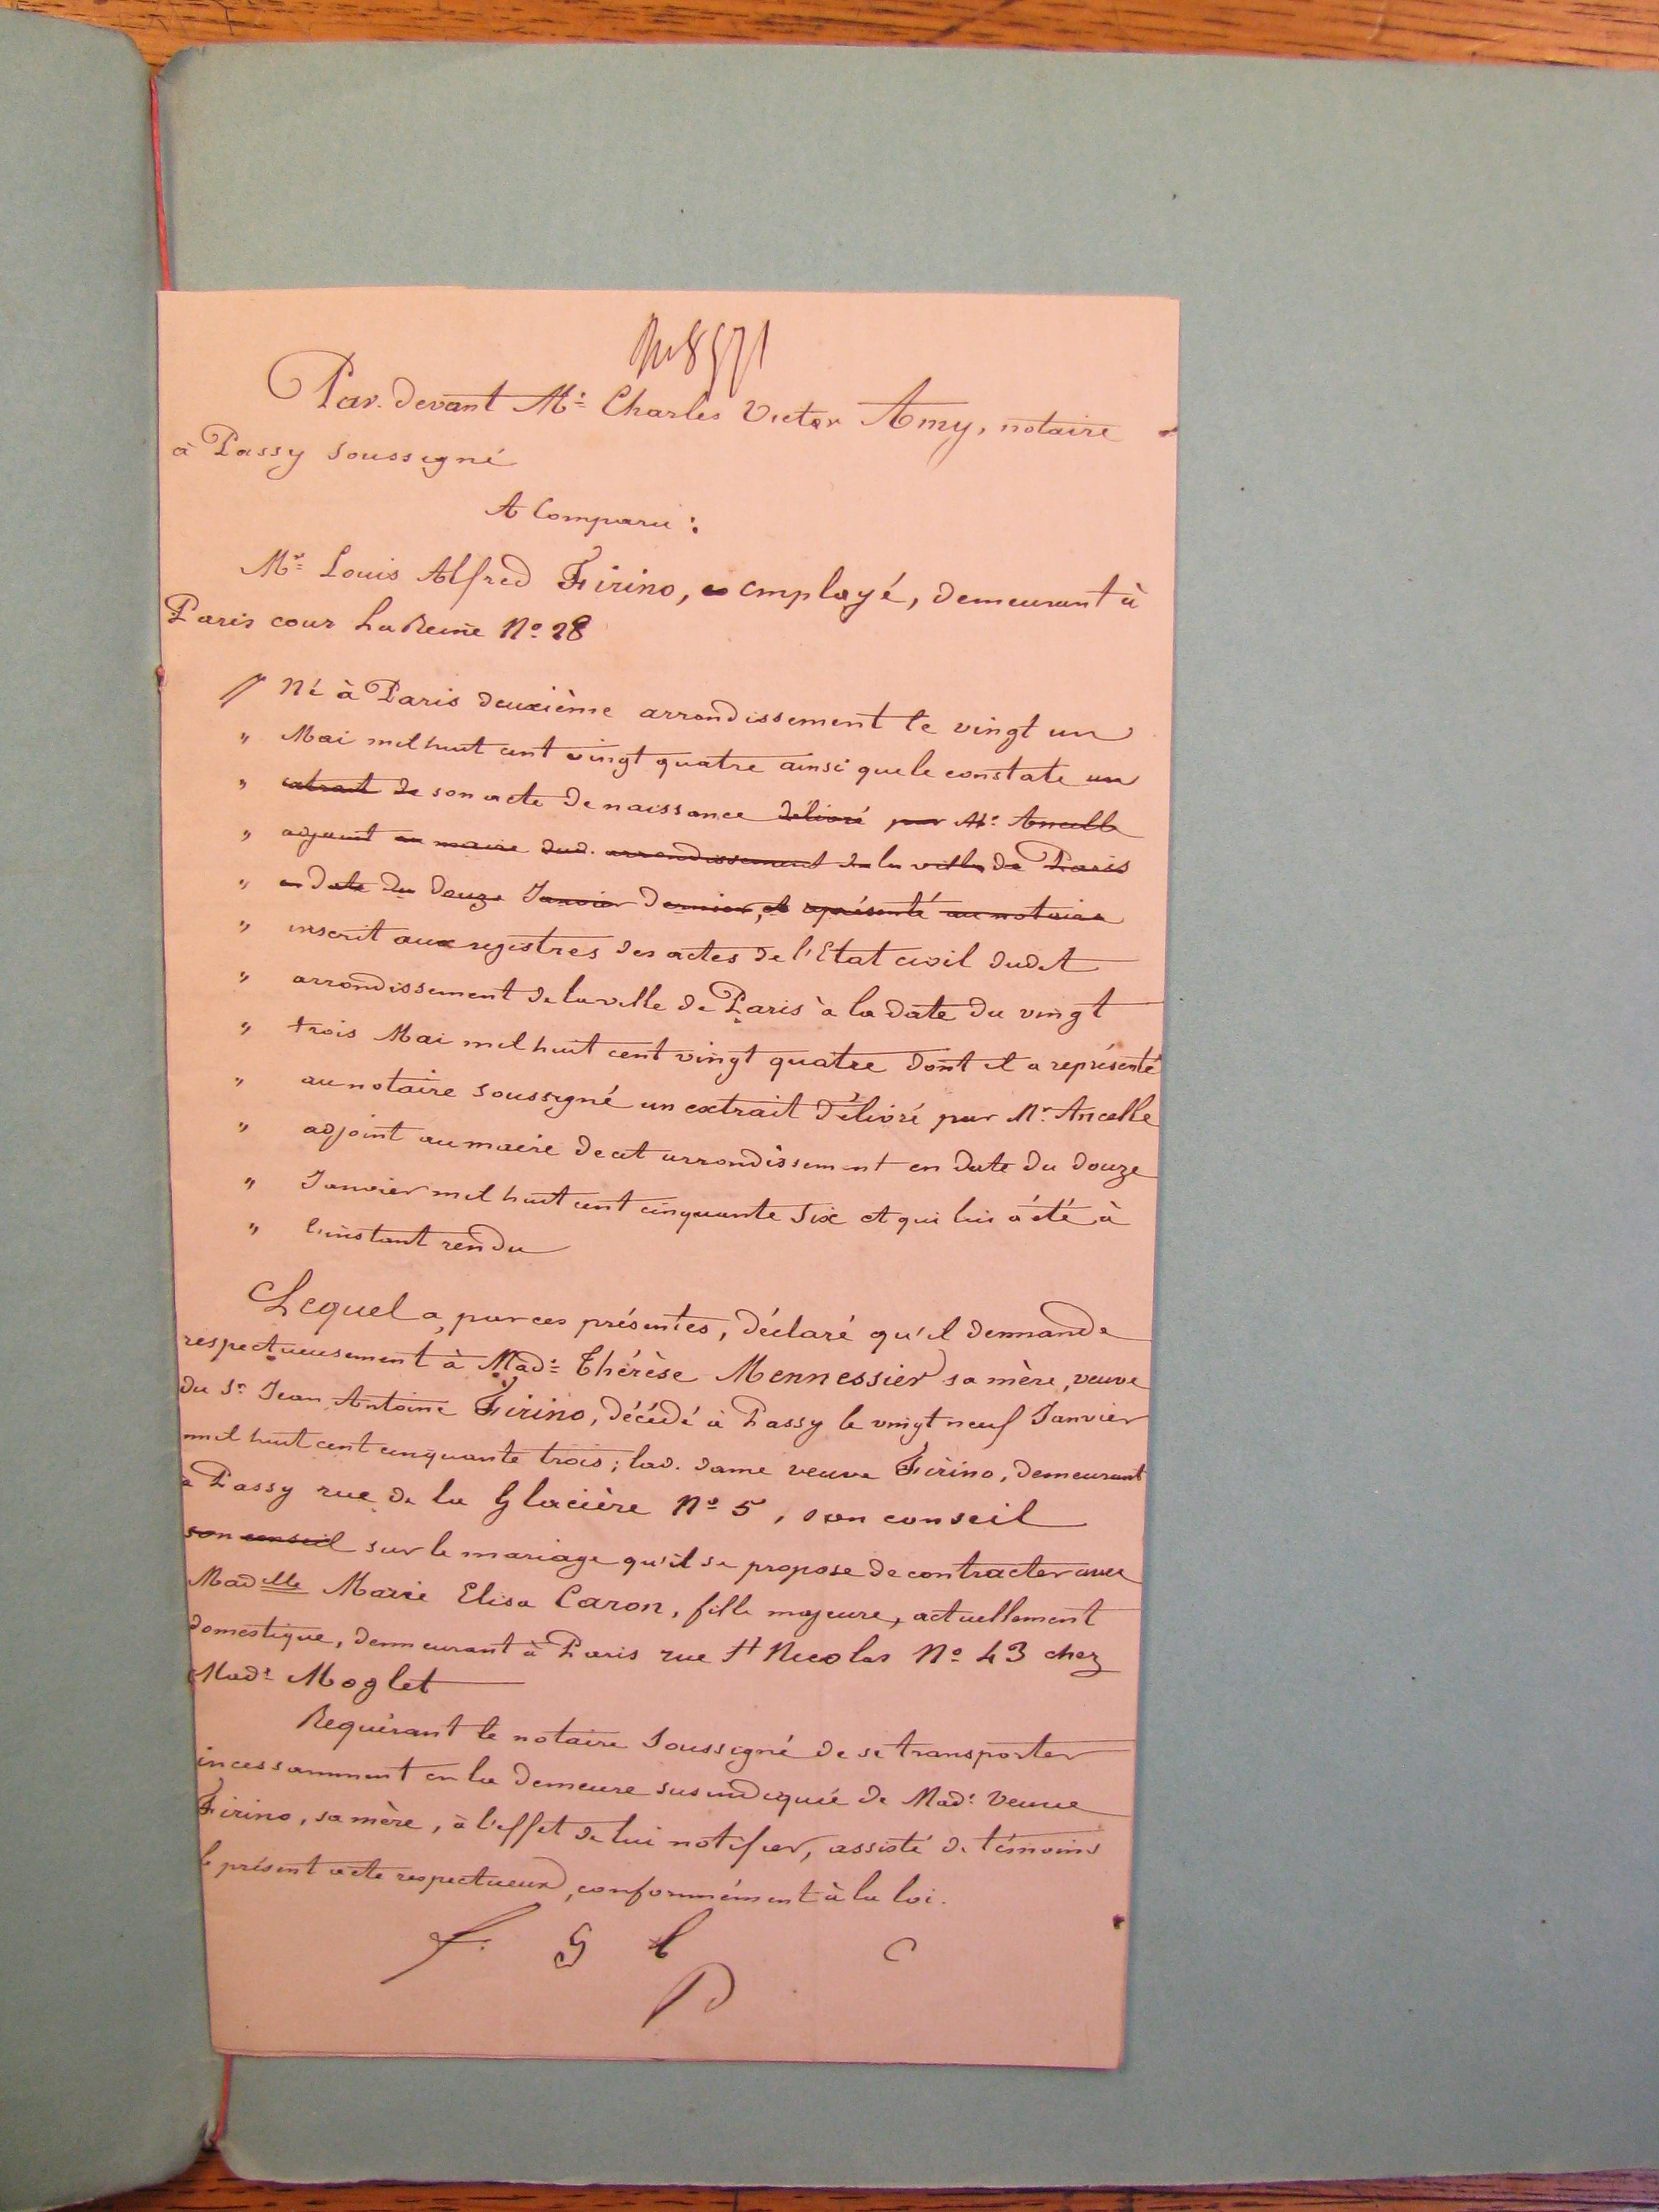 Par. devant Me. Charles Victor Amy, notaire
à Passy soussigné
A Comparu :
Mr. Louis Alfred Firino, employé, demeurant à
Paris cour La Reine No. 28
Né à Paris deuxième arrondissement le vingt un
" Mai mil huit cent vingt quatre ainsi que le constate un
" extrait de son acte de naissance délivré par Mr. Ancelle
" adjoint au maire dud. arrondissement de la ville de Paris
" en date du douze Janvier dernier, et représenté au notaire
" inscrit aux registres des actes de l'Etat civil dudit
" arrondissement de la ville de Paris à la date du vingt
" trois Mai mil huit cent vingt quatre dont il a représenté
" au notaire soussigné un extrait délivré par Mr. Ancelle
" adjoint au maire de cet arrondissement en date du douze
" Janvier mil huit cent cinquante six et qui lui a été à
" l'instant rendu
Lequel a, par ces présentes, déclaré qu'il demande
respectueusement à Made. Thérèse Mennessier sa mère, veuve
du Sr. Jean Antoine Firino, décédé à Passy le vingt neuf Janvier
mil huit cent cinquante trois ; lad. dame veuve Firino, demeurant
à Passy rue de la Glacière No. 5, son conseil
son conseil sur le mariage qu'il se propose de contracter avec
Madelle Marie Elisa Caron, fille majeure, actuellement
domestique, demeurant à Paris rue St Nicolas No. 43 chez
Made. Moglet
Requérant le notaire soussigné de se transporter
incessamment en la demeure susindiquée de Made. Veuve
Firino, sa mère, à l'effet de lui notifier, assisté de témoins
le présent acte respectueux, conformément à la loi.